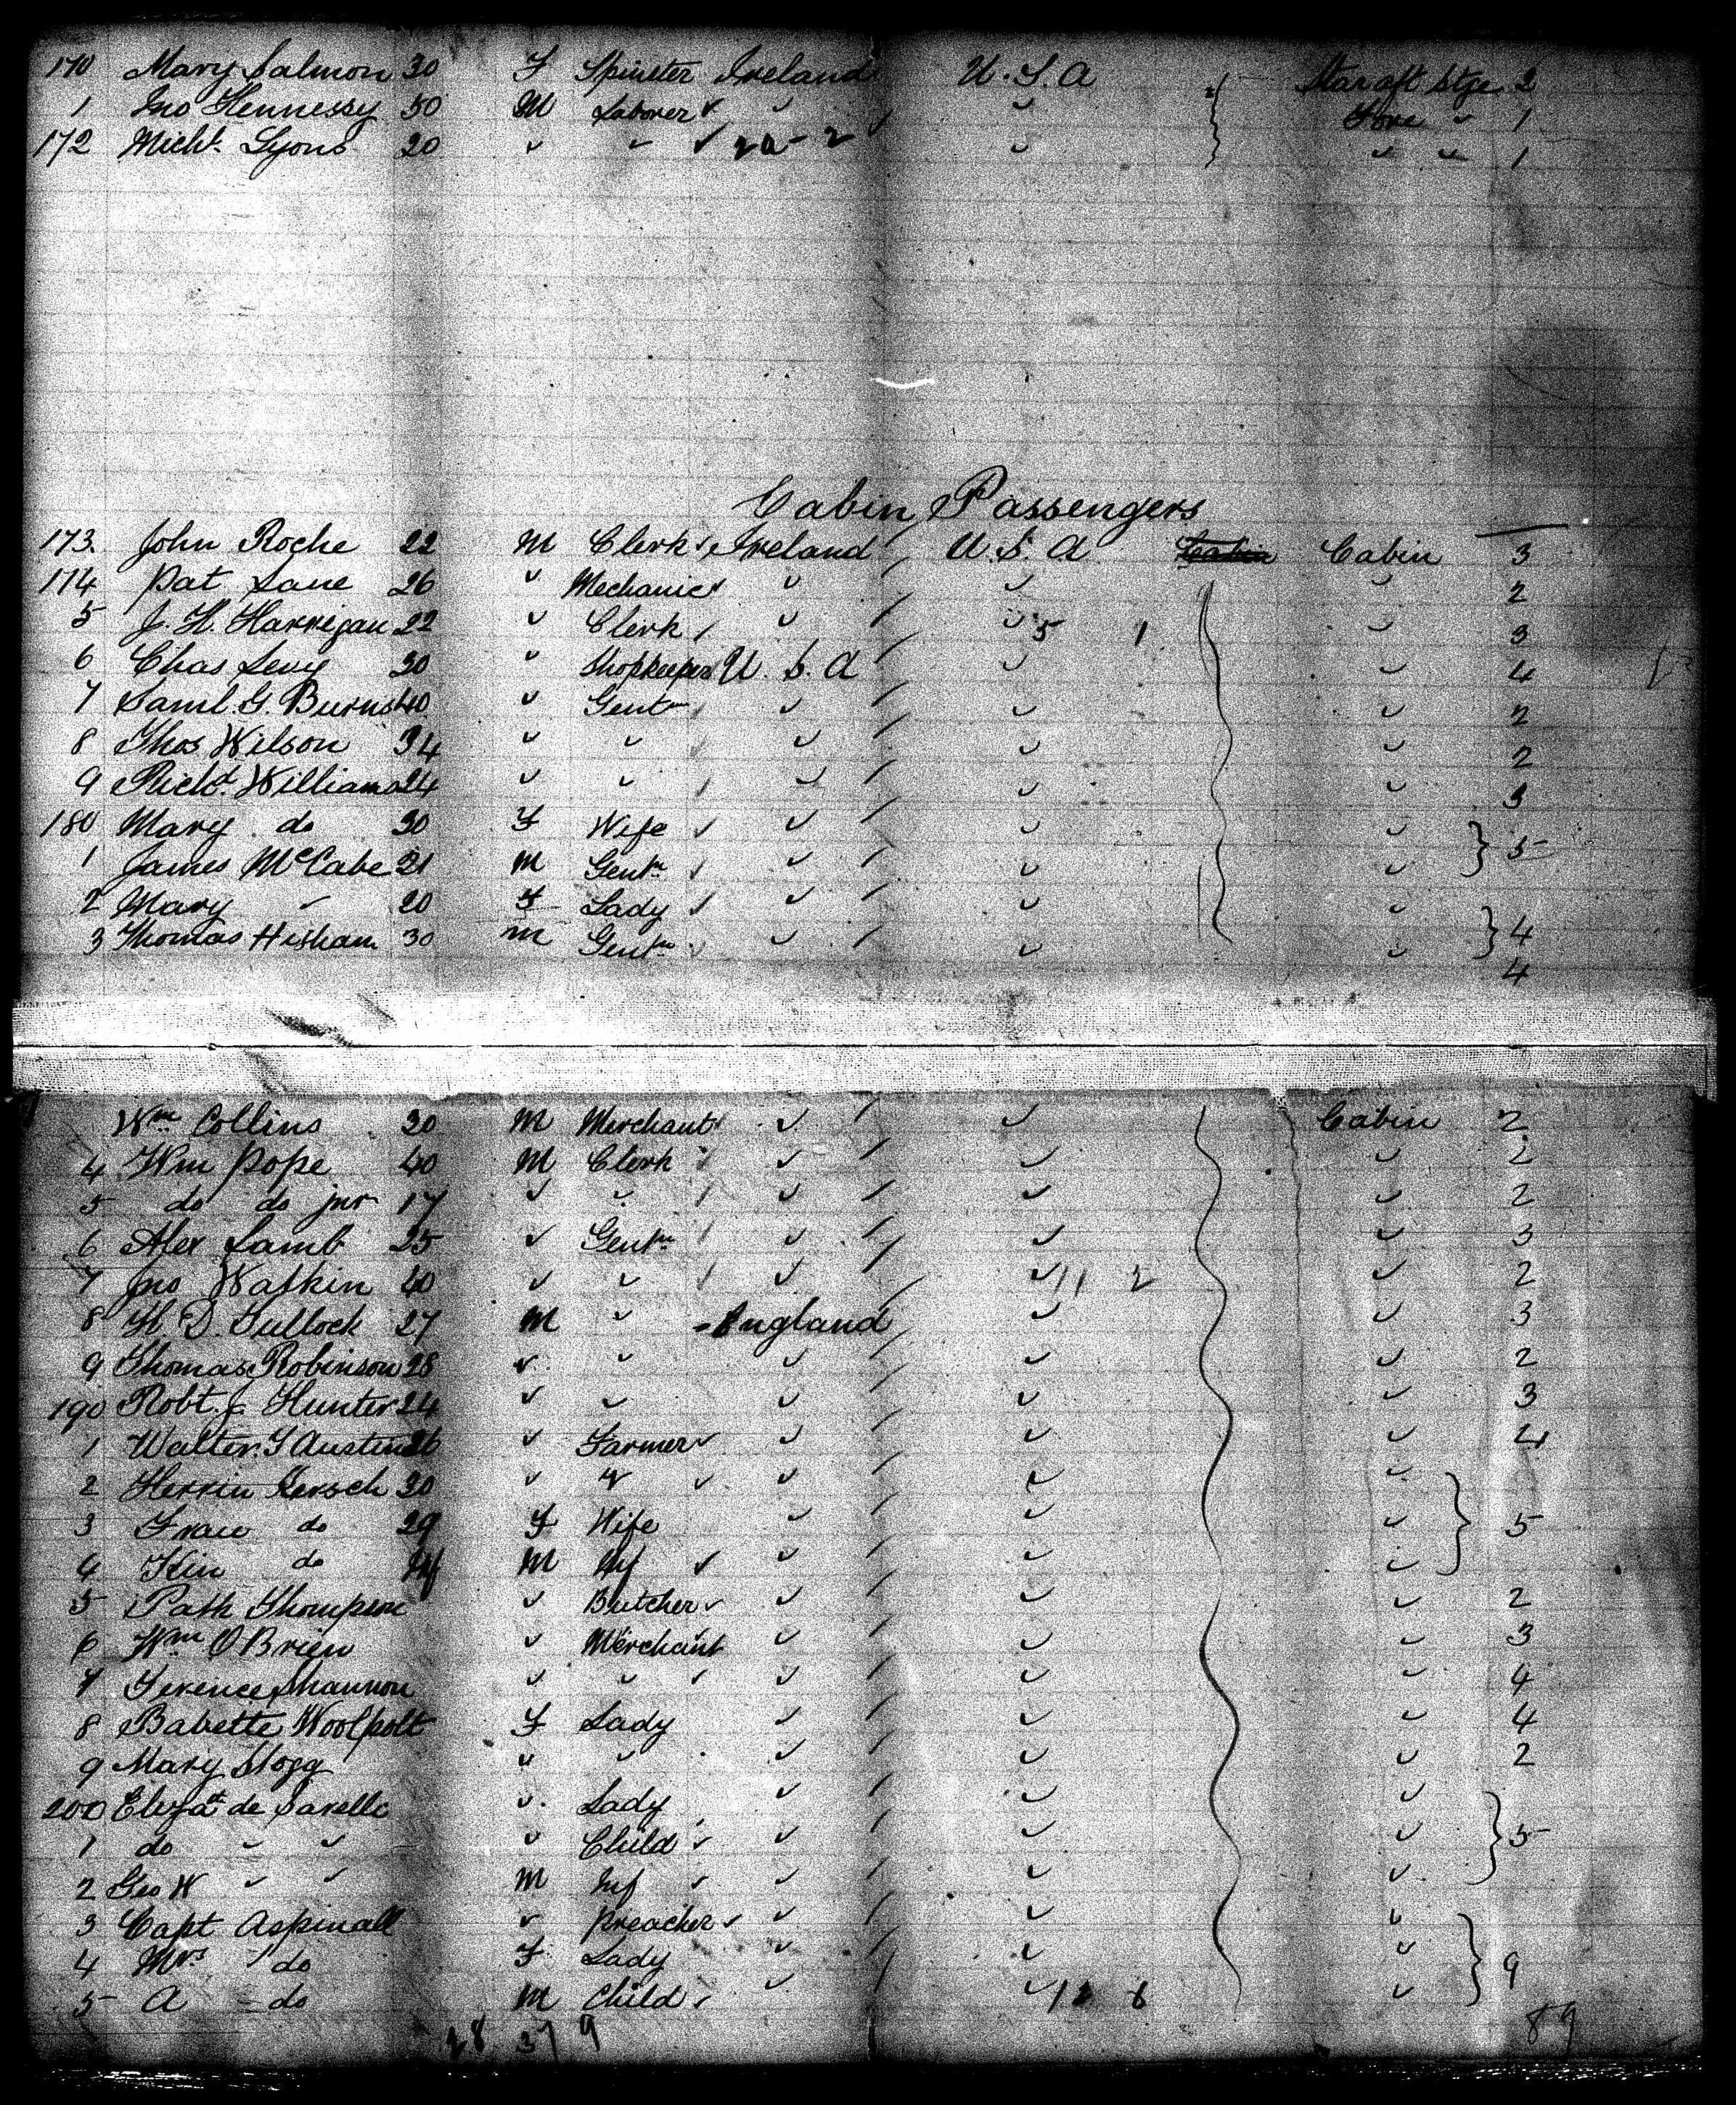 170 Mary Salmon 30 F Spinster Ireland U.S.A Star aft Stge 2
1 Jno Hennessy 50 M Laborer ✓ " " Fore " 1
172 Michl. Lyons 20 " " ✓ 20-2 " " " 1
Cabin Passengers
173. John Roche 22 M Clerk Ireland U.S.A Cabin 3
174 Pat Lane 26 " Mechanic " " " 2
5 J. H. Harrigan 22 " Clerk " " 5 1 " 3
6 Chas Levy 30 " Shopkeeper U.S.A " " 4
7 Saml. G. Burns 40 " Gentm " " " 2
8 Thos Wilson 34 " " " " " 2
9 Richd. Williams 24 " " " " " 3
180 Mary do 30 F Wife " " "
1 James McCabe 21 M Gentn " " " } 5
2 Mary " 20 F Lady " " "
3 Thomas Hisham 30 M Gentn " " " } 4
4
Wm Collins 30 M Merchant " " Cabin 2
4 Wm Pope 40 M Clerk " " " 2
5 do do jnr 17 " " " " " 2
6 Alex Lamb 25 " Gentn " " " 3
7 Jno Watkin 40 " " " " 11 2 " 2
8 H. D. Tullock 27 M " England " " 3
9 Thomas Robinson 28 " " " " " 2
190 Robt. J. Hunter 24 " " " " " 3
1 Walter. T Austin 26 " Farmer " " " 4
2 Herrin Hersch 30 " " " " "
3 do 29 F Wife " " " } 5
4 do Inf M Inf " " "
5 Patk Thompson " Butcher " " " 2
6 Wm O Brien " Merchant " " " 3
7 Terence Shannon " " " " " 4
8 Babette Woolpolt F Lady " " " 4
9 Mary Hogg " " " " " 2
200 Elizat de Savelle " Lady " " "
1 do " " " Child " " " } 5
2 Geo W " " M Inf " " "
3 Capt Aspinall " Preacher " " "
4 Mrs do F Lady " " " } 9
5 A do M Child " " 12 6 "
28 37 9 89